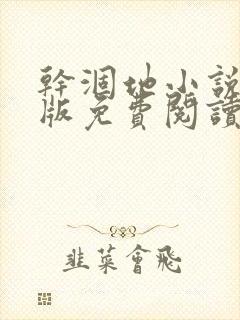 幹涸地小説
版免費閱讀
韭菜會飛